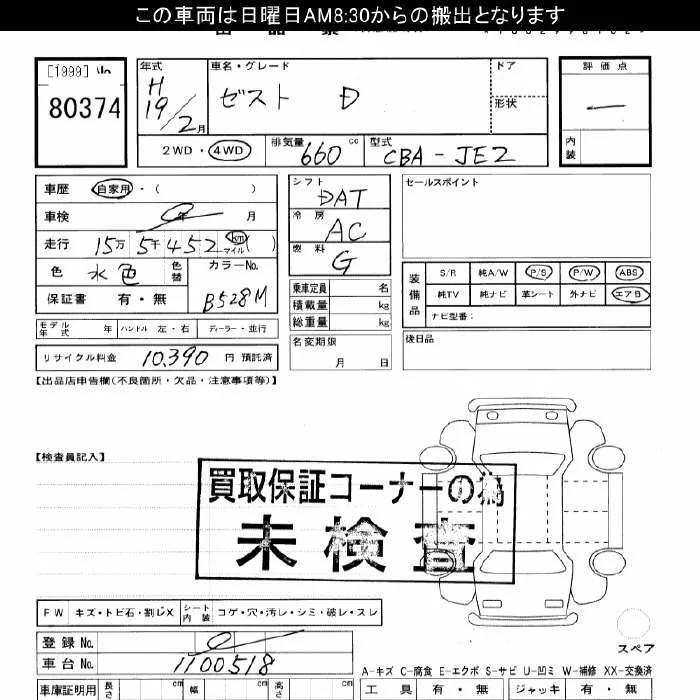 この車両は日曜日AM8:30からの搬出となります
[1999]
80374
年式
H
19/2月
車名・グレード
ゼスト D
ドア
形状
2WD・4WD
排気量 660 cc
型式 CBA-JE2
評価点
—
内装
車歴 自家用・( )
車検 年 月
走行 15万5千452 km マイル ( )
色 水色 色替
カラーNo.
B528M
保証書 有・無
シフト DAT
冷房 AC
燃料 G
乗車定員 名
積載量 kg
総重量 kg
名変期限
月 日
セールスポイント
装備品
S/R 純A/W P/S P/W ABS
純TV 純ナビ 革シート 外ナビ エアB
ナビ型番:
後日品
モデル年式 年 ハンドル 左・右 ディーラー・並行
リサイクル料金 10,390 円 預託済
【出品店申告欄(不良箇所・欠品・注意事項等)】
【検査員記入】
買取保証コーナーの為
未検査
FW キズ・トビ石・割レX シート内装 コゲ・穴・汚レ・シミ・破レ・スレ
登録No.
車台No. 1100518
スペア
A-キズ C-腐食 E-エクボ S-サビ U-凹ミ W-補修 XX-交換済
車庫証明用 長さ cm 幅 cm 高さ cm
工具 有・無 ジャッキ 有・無